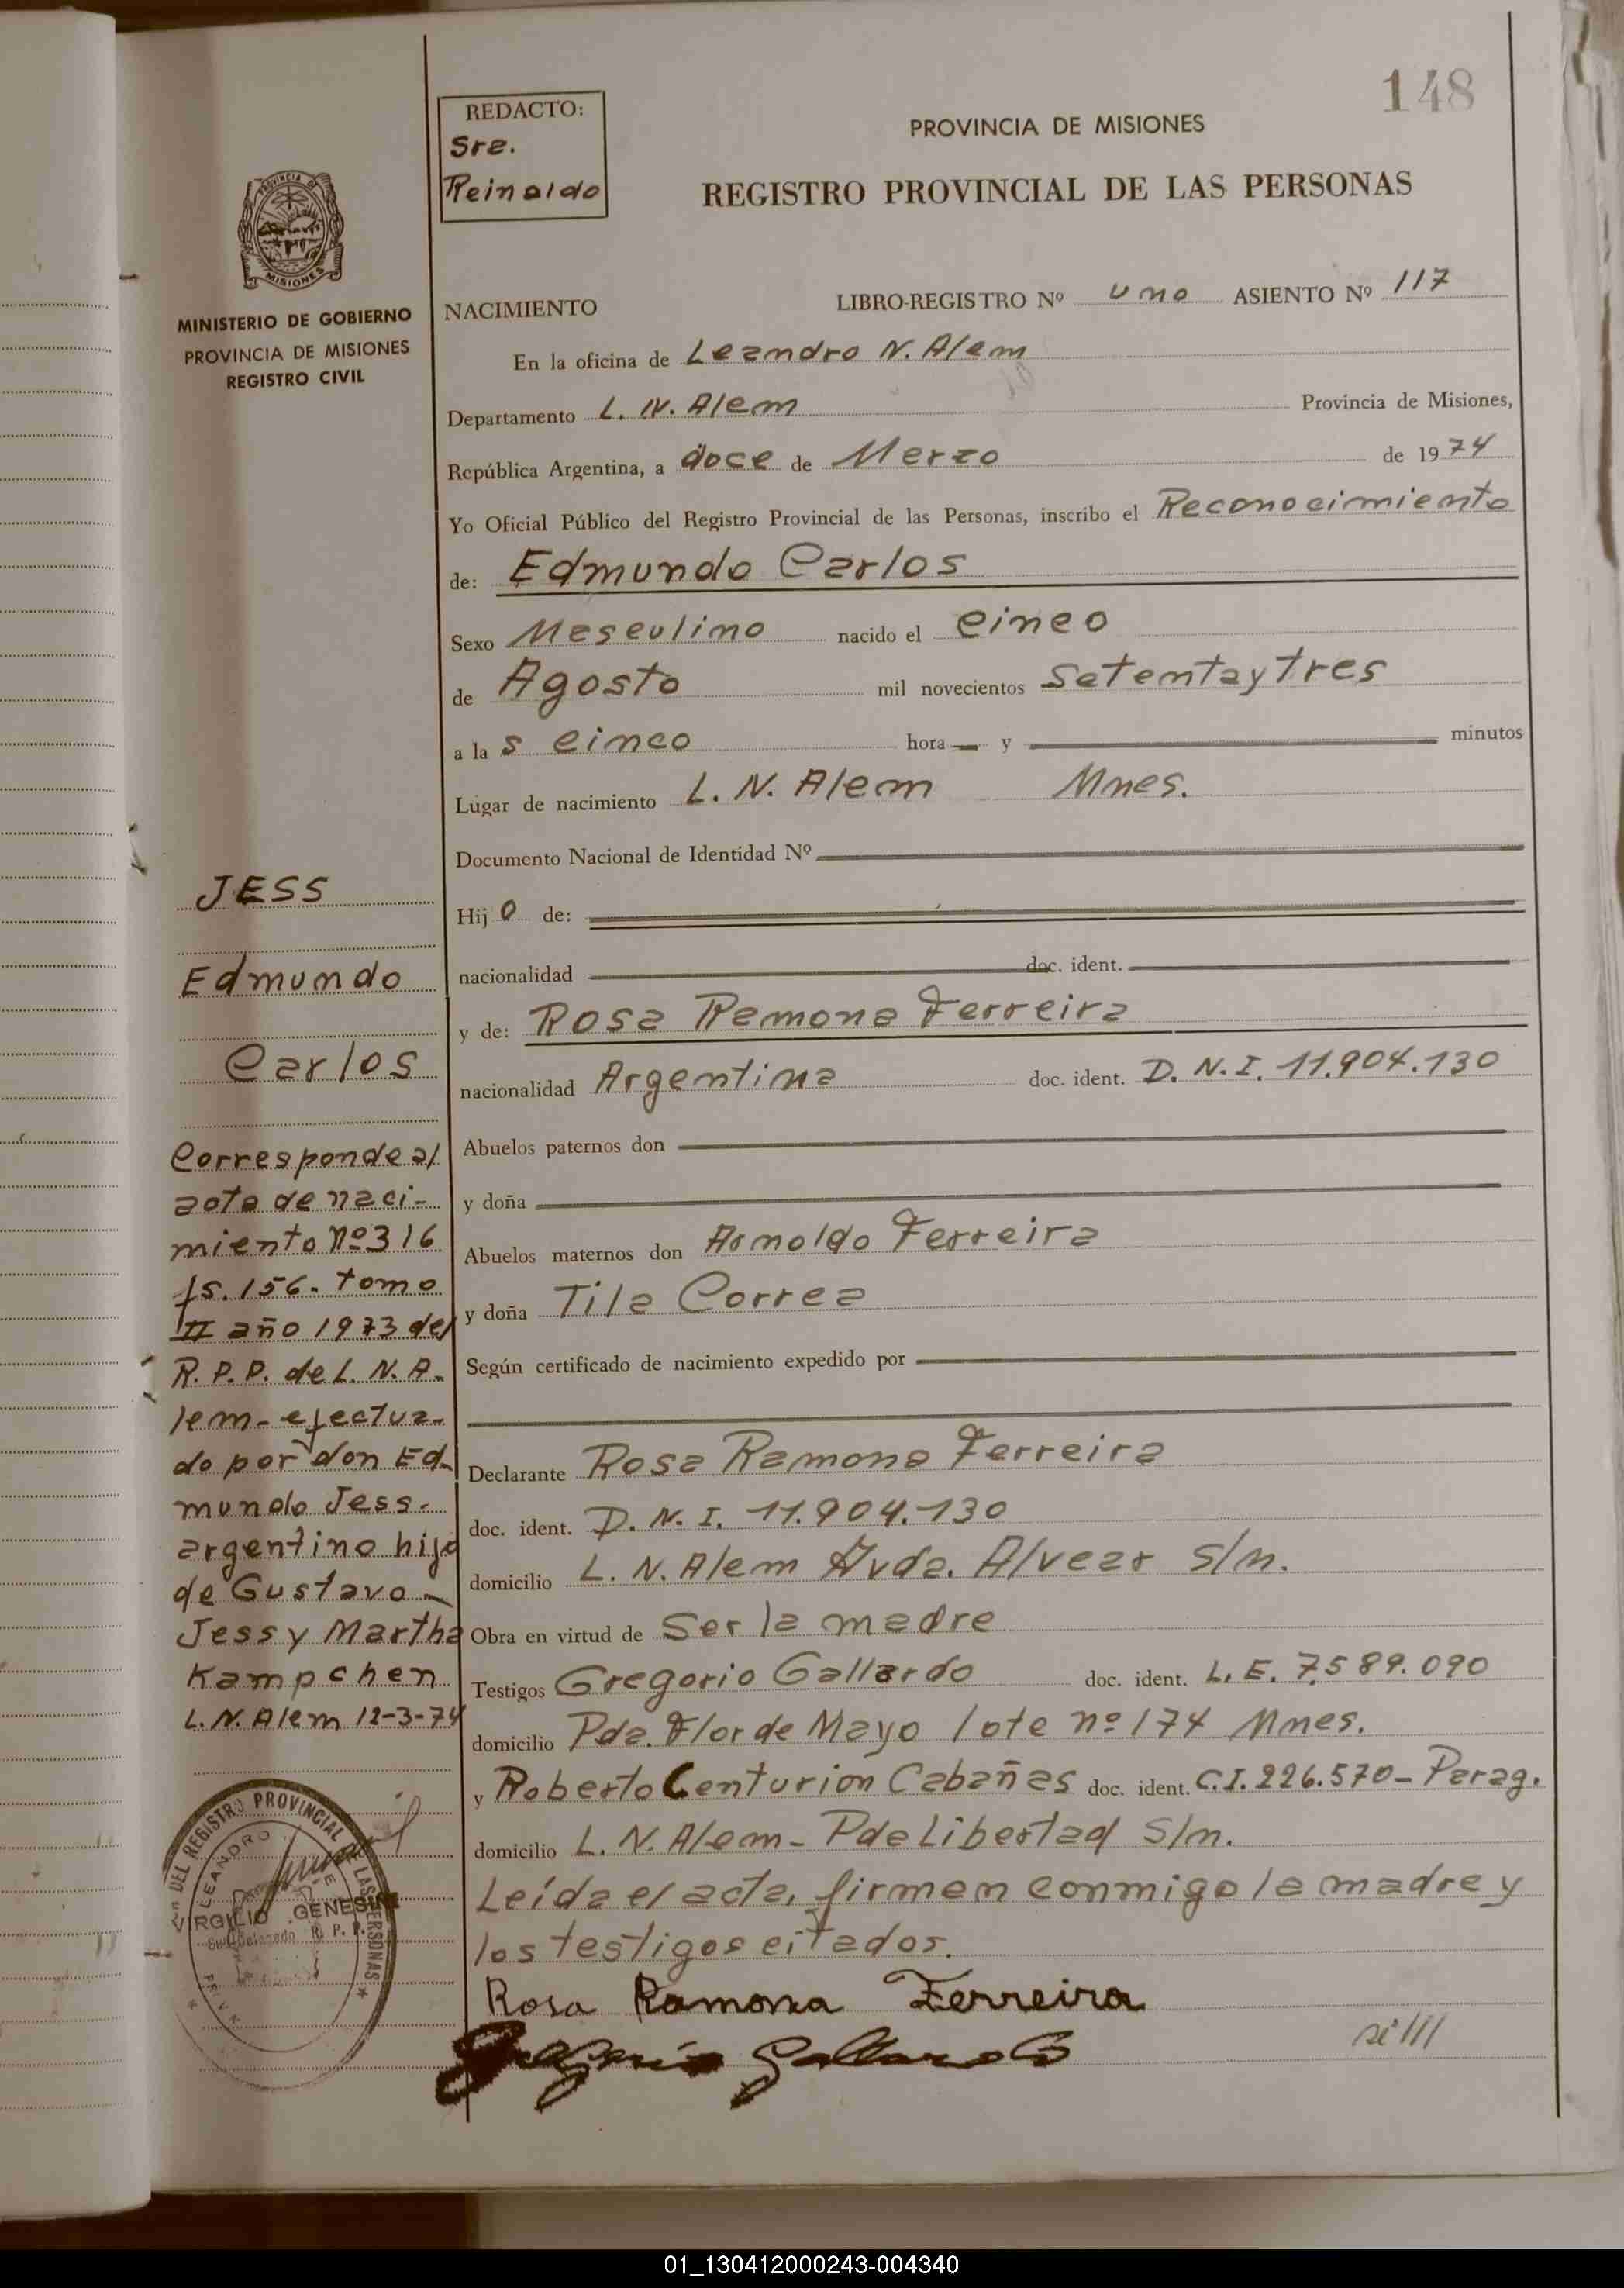 148
REDACTO:
Sra.
Reinaldo
PROVINCIA DE MISIONES
REGISTRO PROVINCIAL DE LAS PERSONAS
PROVINCIA DE
MISIONES
MINISTERIO DE GOBIERNO
PROVINCIA DE MISIONES
REGISTRO CIVIL
NACIMIENTO LIBRO-REGISTRO Nº uno ASIENTO Nº 117
En la oficina de Leandro N. Alem
Departamento L. N. Alem Provincia de Misiones,
República Argentina, a doce de Marzo de 1974
Yo Oficial Público del Registro Provincial de las Personas, inscribo el Reconocimiento
de: Edmundo Carlos
Sexo Masculino nacido el cinco
de Agosto mil novecientos Setentaytres
a la s cinco hora — y — minutos
Lugar de nacimiento L. N. Alem Mnes.
Documento Nacional de Identidad Nº —
Hij o de: —
nacionalidad — doc. ident. —
y de: Rosa Ramona Ferreira
nacionalidad Argentina doc. ident. D. N. I. 11.904.130
Abuelos paternos don —
y doña —
Abuelos maternos don Arnoldo Ferreira
y doña Tila Correa
Según certificado de nacimiento expedido por —
Declarante Rosa Ramona Ferreira
doc. ident. D. N. I. 11.904.130
domicilio L. N. Alem Avda. Alvear s/n.
Obra en virtud de Ser la madre
Testigos Gregorio Gallardo doc. ident. L. E. 7.589.090
domicilio Pda. Flor de Mayo lote nº 174 Mnes.
y Roberto Centurion Cabañas doc. ident. C.I. 226.570 - Parag.
domicilio L. N. Alem - Pda Libertad S/n.
Leída el acta, firman conmigo la madre y
los testigos citados.
Rosa Ramona Ferreira
Gregorio Gallardo
JESS
Edmundo
Carlos
Corresponde al
acta de naci-
miento nº 316
fs. 156. tomo
II año 1973 del
R. P. P. de L. N. A-
lem - efectua-
do por don Ed-
mundo Jess-
argentino hijo
de Gustavo
Jess y Martha
Kampchen
L. N. Alem 12-3-74
DEL REGISTRO PROVINCIAL DE LAS PERSONAS
LEANDRO
VIRGILIO GENESINI
R. P. P.
01_130412000243-004340